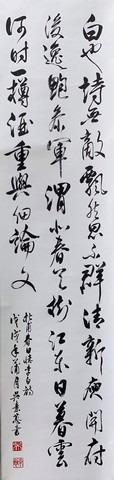 白也詩無敵飄然思不群清新庾開府
俊逸鮑參軍渭北春天樹江東日暮雲
何時一樽酒重與細論文
杜甫春日憶李白
戊戌年蒲月